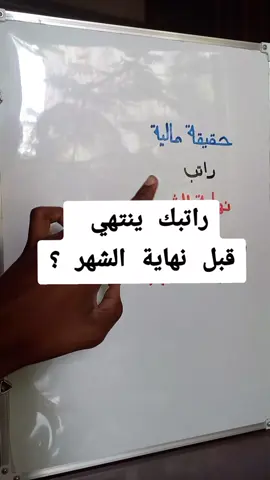 حقيقة مالية
راتب
نهاية
راتبك ينتهي
قبل نهاية الشهر ؟